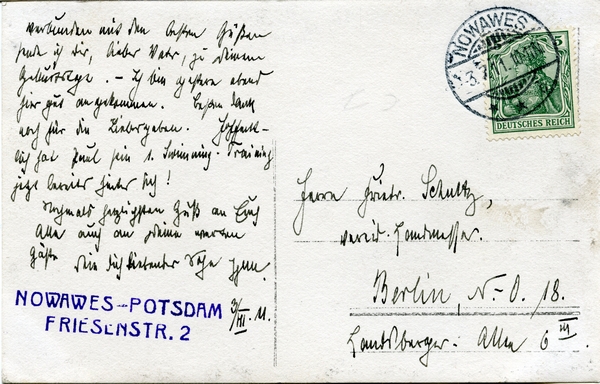 verbunden mit den besten Grüßen
sende ich Dir, lieber Vater, zu Deinem
Geburtstage. – Ich bin gestern abend
hier gut angekommen. Besten Dank
noch für die Liebesgaben. Hoffent-
lich hat Paul sein 1. Swimming-Training
jetzt bereits hinter sich!
Nochmals herzlichsten Gruß an Euch
Alle auch an Deine werten
Gäste
Dein Dich liebender Sohn
NOWAWES-POTSDAM
FRIESENSTR. 2
3/III 11.
NOWAWES
5
DEUTSCHES REICH
Herrn Friedr. Schultz,
vereid. Landmesser.
Berlin, N.-O. 18.
Landsberger-Allee 6 III